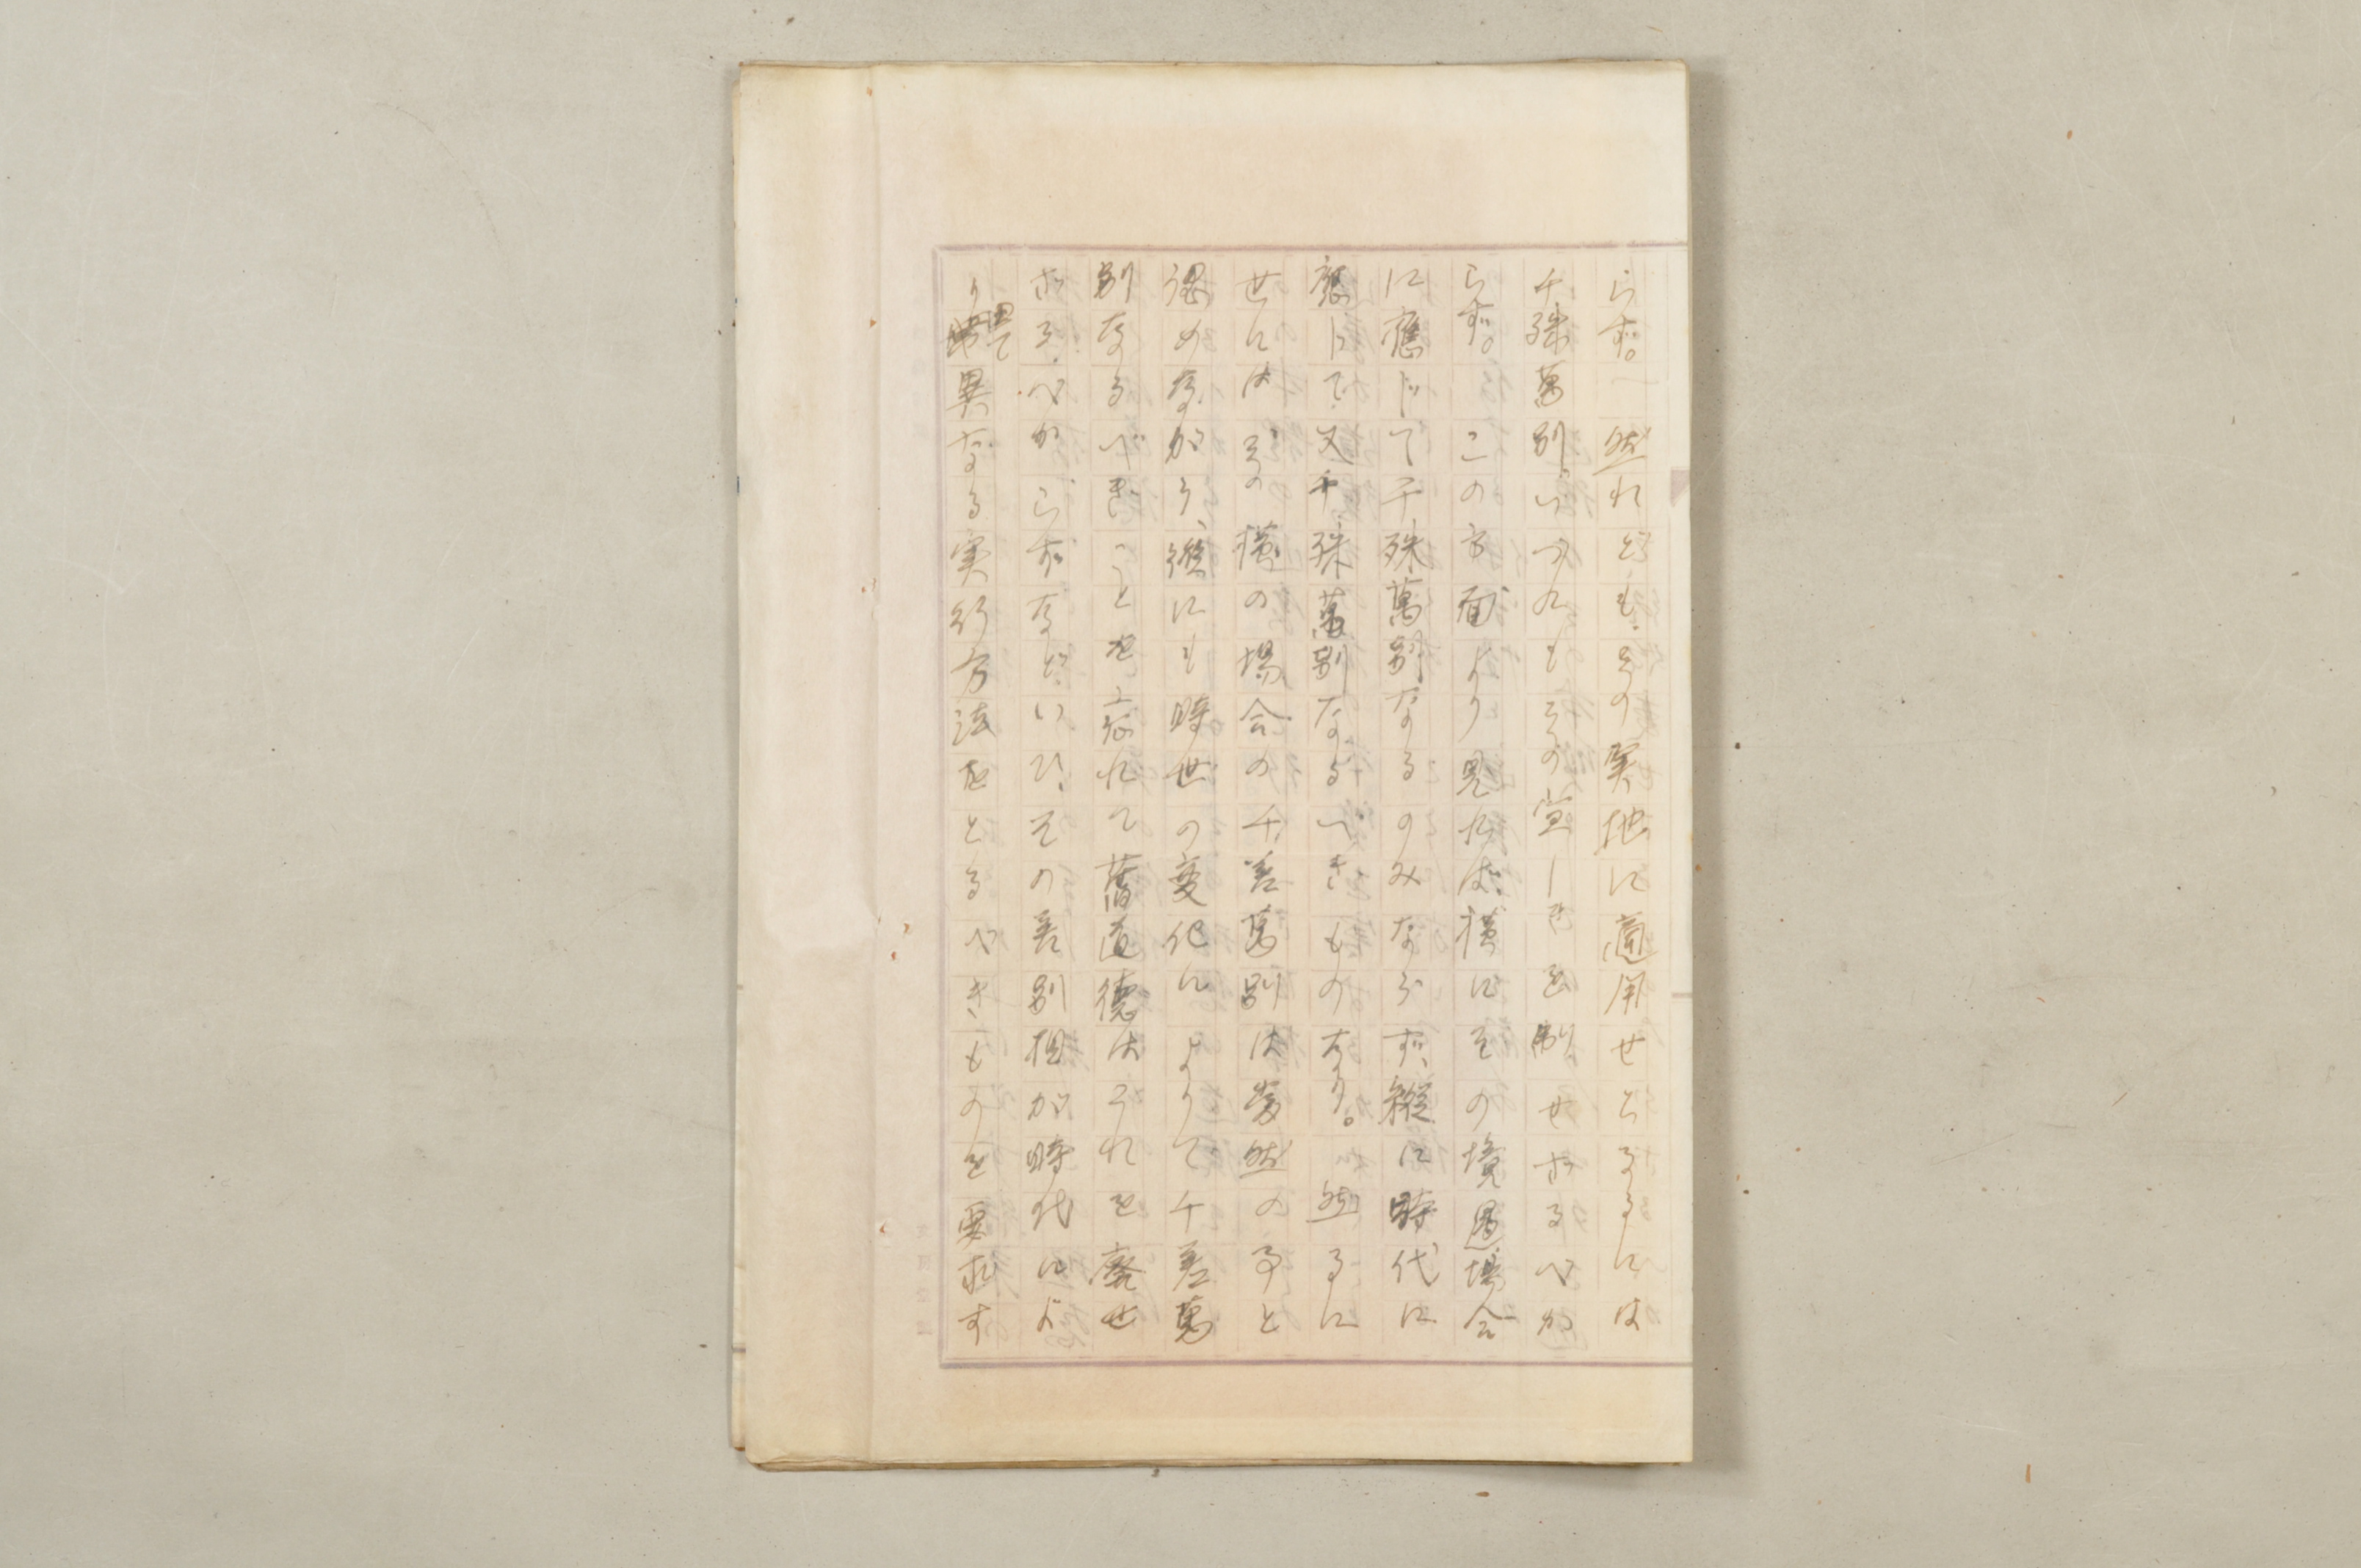 らず。然れども、その実地に適用せらるるには
千殊萬別、いづれもその宜しきを制せざるべか
らず。この方面より見れば、横にその境遇場合
に應じて千殊萬別なるのみならず、縦に時代に
應じて、又千殊萬別なるべきものなり。然るに
世には、その横の場合の千差萬別は當然の事と
認めながら、縦にも時世の変化によりて千差萬
別なるべきことを忘れて舊道徳はこれを廃せ
ざるべからずなどいひ、その差別相が時代によ
り異なる実行方法をとるべきものを要求す